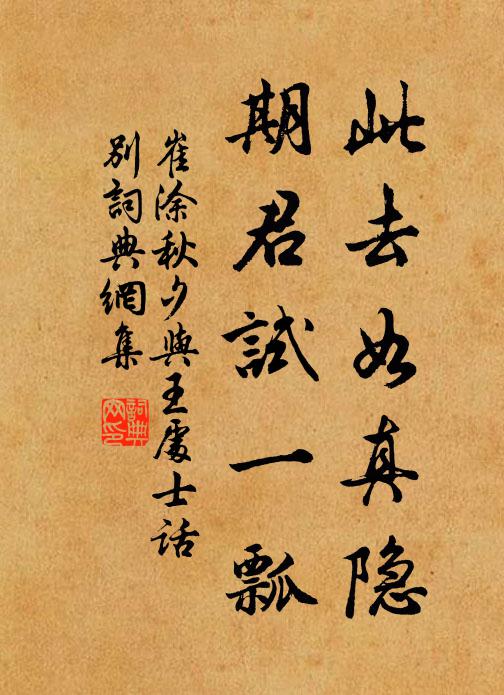 此去如真隐
期君試一瓢
崔涂秋夕與王處士話
别詞典網集
詞典
网印